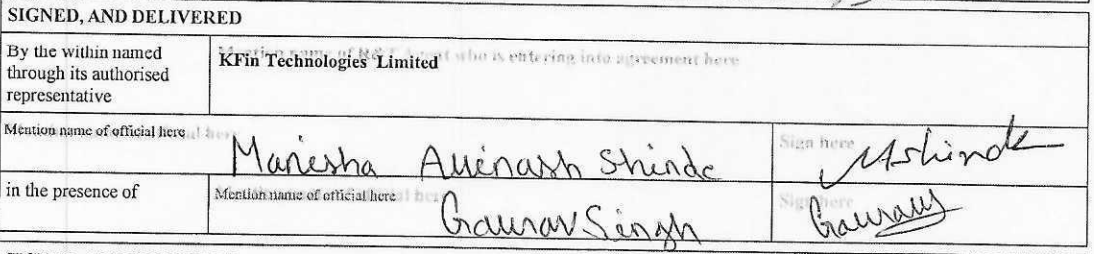 SIGNED, AND DELIVERED
By the within named through its authorised representative
Mention name of R&T Agent who is entering into agreement here
KFin Technologies Limited
Mention name of official here
Manesha Avinash Shinde
Sign here
MShinde
in the presence of
Mention name of official here
Gaurav Singh
Sign here
Gaurav